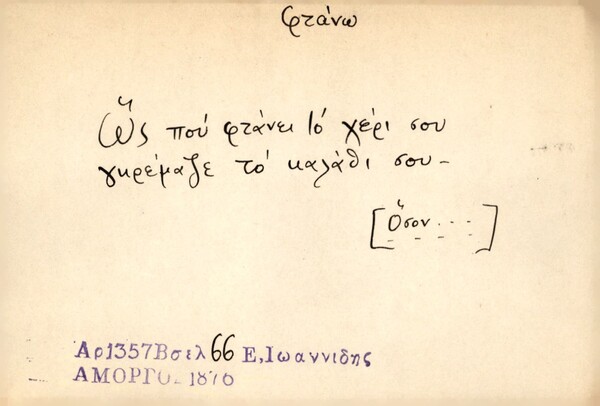 φτάνω
Ὥς πού φτάνει τό χέρι σου
γκρέμαζε τό καλάθι σου -
[Ὅσον . . .
- - - -]
Αρ1357Βσελ66 Ε,Ιωαννιδης
ΑΜΟΡΓΟΣ 1876